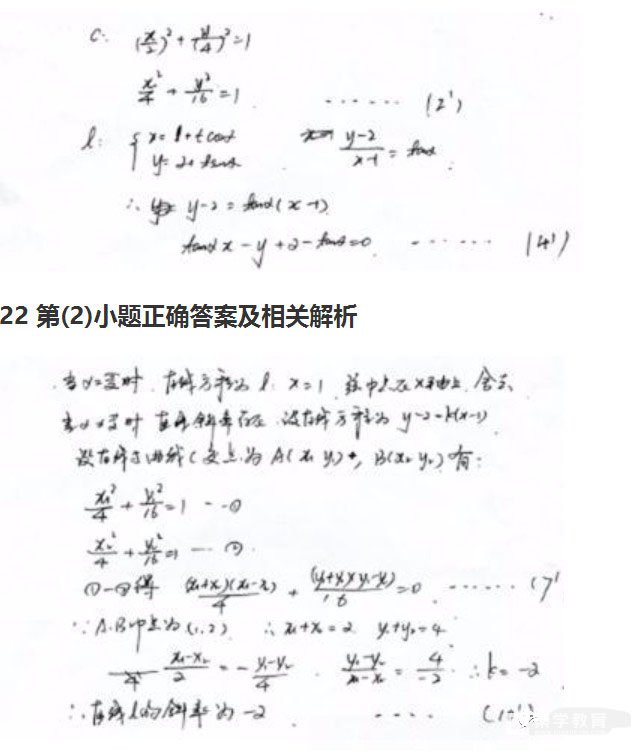 C: (x/2)²+(y/4)²=1
x²/4+y²/16=1 ······ (2')
l: { x=1+tcosα (y-2)/(x-1)=tanα
y=2+tsinα
∴ y-2=tanα(x-1)
tanα x-y+2-tanα=0 ······ (4')
22 第(2)小题正确答案及相关解析
当α=π/2时,直线方程为 l: x=1 弦中点在x轴上,舍去
当α≠π/2时 直线斜率存在,设直线方程为 y-2=k(x-1)
设直线与曲线C交点为A(x₁ y₁), B(x₂ y₂)有:
x₁²/4+y₁²/16=1 --①
x₂²/4+y₂²/16=1 --②
①-②得 (x₁+x₂)(x₁-x₂)/4+(y₁+y₂)(y₁-y₂)/16=0 ······ (7'
∵A.B中点为(1,2) ∴x₁+x₂=2 y₁+y₂=4
(x₁-x₂)/2=-(y₁-y₂)/4 (y₁-y₂)/(x₁-x₂)=4/-2 ∴k=-2
∴直线l的斜率为-2 ···· (10')
学教育